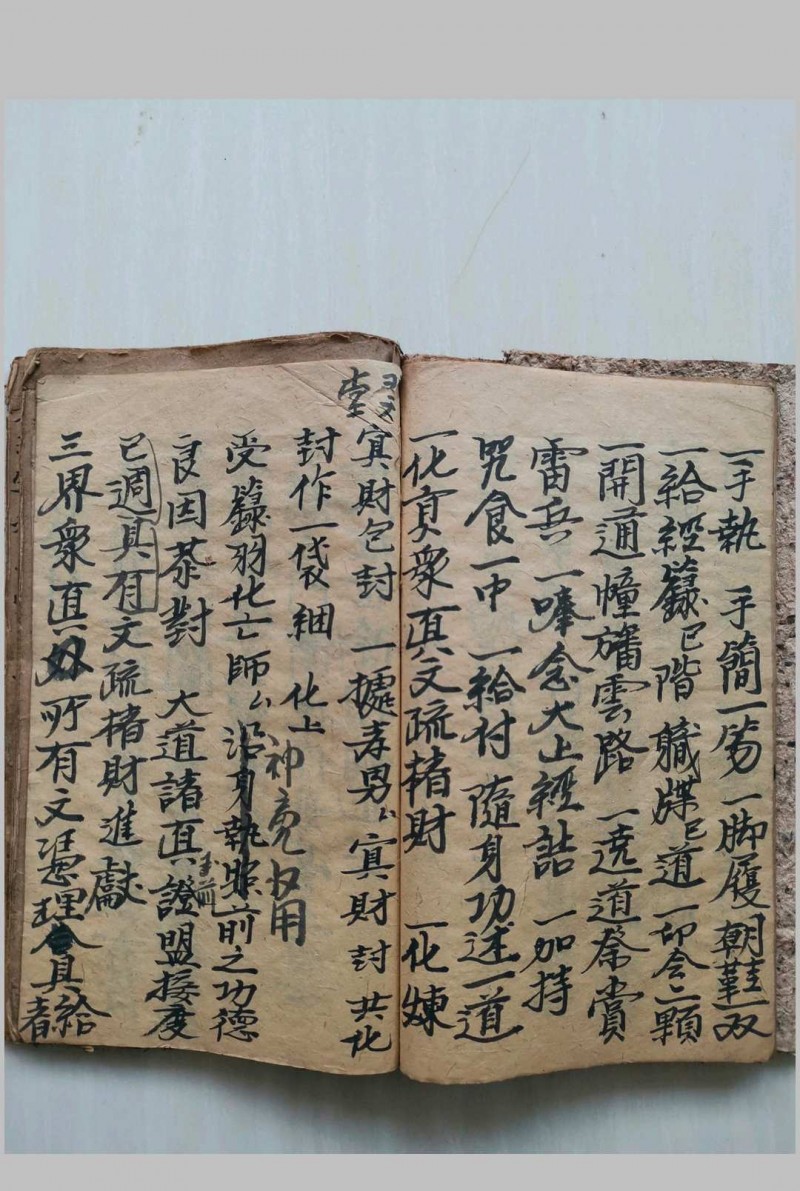 一手執 手簡一笏一脚履朝鞋一双
一給經籙㔾階職牒㔾道一印令二顆
一開通幢旛雲路 一遶道祭賞
雷兵 一嗱念大上經誥 一加持
咒食一中 一給付 隨身功述一道
一化賫衆真文疏楮財 一化煉
冥財包封 一據孝男厶冥財封共化
封作一袋細 化上神亮收用
受籙羽化亡師厶沿身執照前之功德
良因恭對 大道諸真證盟接度
已週具有文疏楮財進獻
三界衆真 所有文憑理合具給者